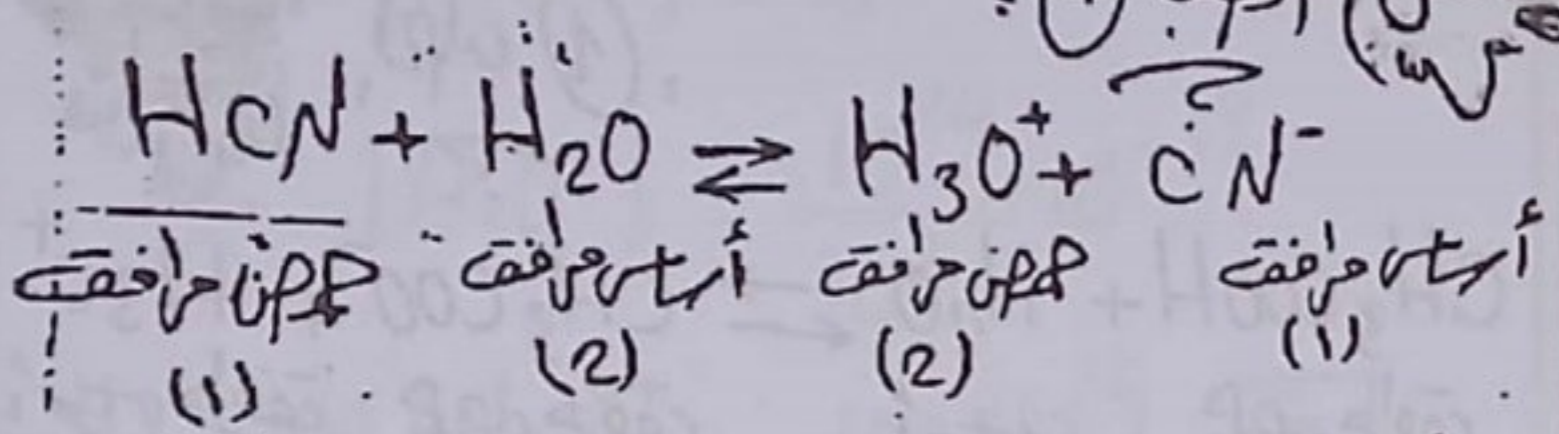 HCN + H₂O ⇌ H₃O⁺ + CN⁻
حمض مرافق أساس مرافق حمض مرافق أساس مرافق
(1) (2) (2) (1)